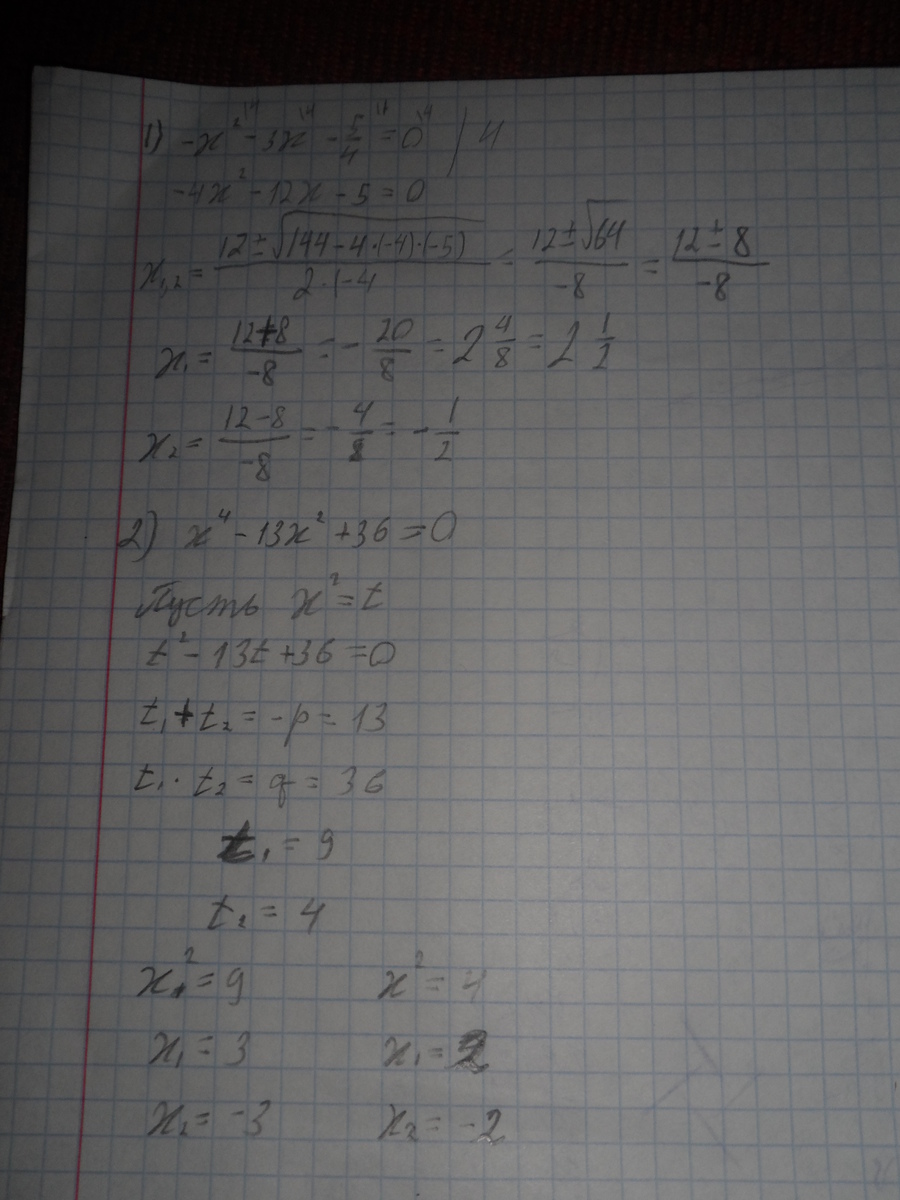 1) -x² \4 - 3x \4 - 5/4 \1 = 0 \4 / 4
-4x² - 12x - 5 = 0
x₁,₂ = (12 ± √(144 - 4·(-4)·(-5)))/(2·(-4) = (12 ± √64)/(-8) = (12 ± 8)/(-8)
x₁ = (12+8)/(-8) = - 20/8 = 2 4/8 = 2 1/2
x₂ = (12-8)/(-8) = - 4/8 = - 1/2
2) x⁴ - 13x² + 36 = 0
Пусть x² = t
t² - 13t + 36 = 0
t₁ + t₂ = -p = 13
t₁ · t₂ = q = 36
t₁ = 9
t₂ = 4
x² = 9 x² = 4
x₁ = 3 x₁ = 2
x₂ = -3 x₂ = -2